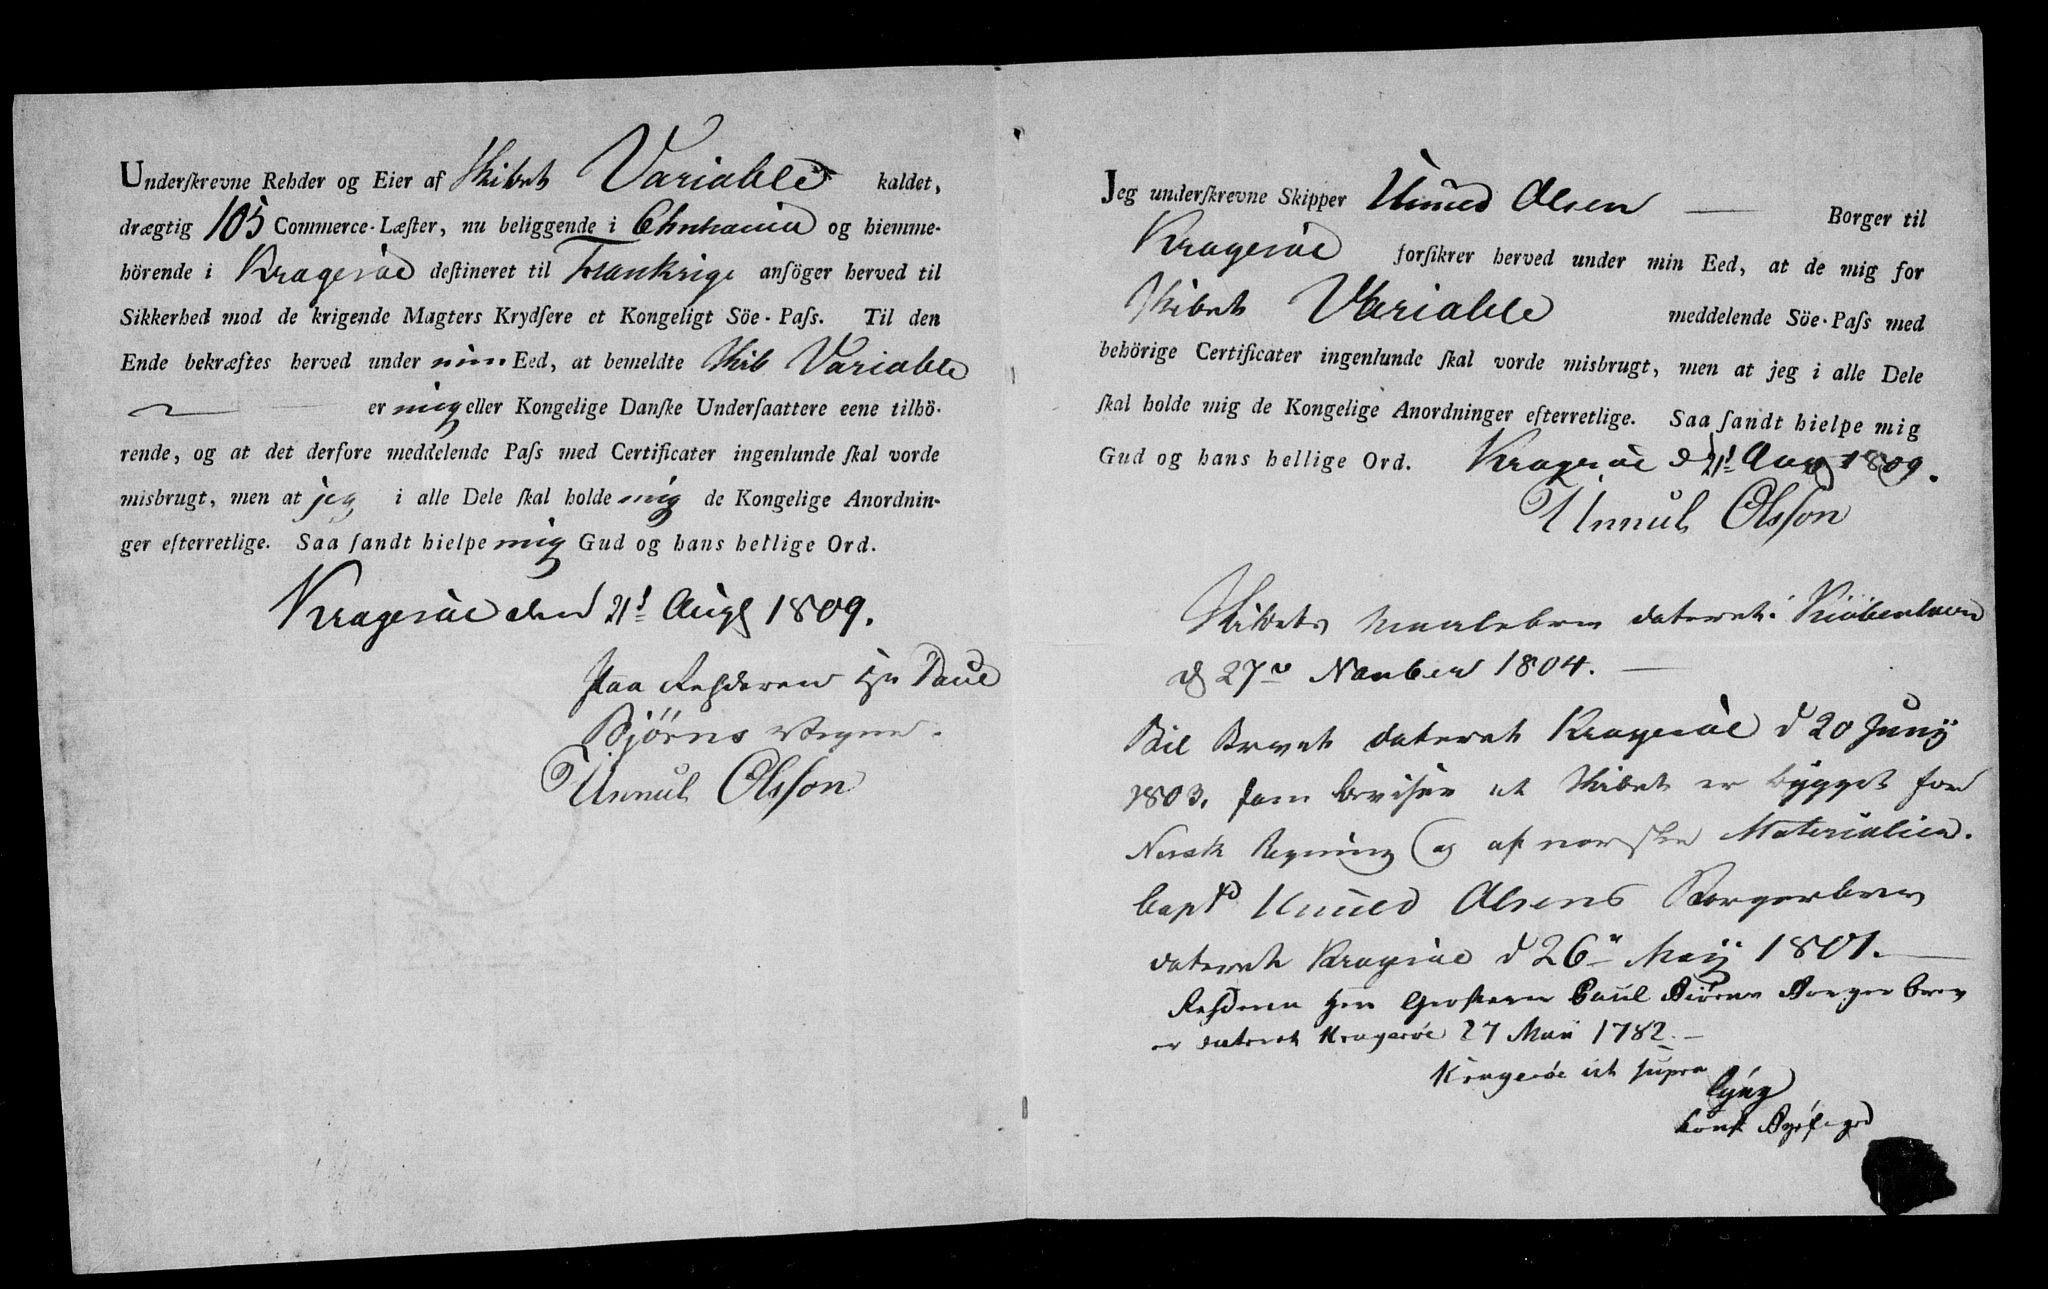 Underskrevne Rehder og Eier af Skibet Variable kaldet,
drægtig 105 Commerce-Læster, nu beliggende i Christiania og hiemme-
hörende i Krageröe destineret til Frankrige ansöger herved til
Sikkerhed mod de krigende Magters Krydsere et Kongeligt Söe-Pass. Til den
Ende bekræftes herved under min Eed, at bemeldte Skib Variable
er mig eller Kongelige Danske Undersaattere eene tilhö-
rende, og at det derfore meddelende Pass med Certificater ingenlunde skal vorde
misbrugt, men at jeg i alle Dele skal holde mig de Kongelige Anordnin-
ger efterretlige. Saa sandt hielpe mig Gud og hans hellige Ord.
Krageröe den 21d Augt 1809.
Paa Rehderen Hr Paul
Björns Vegne.
Knnul Olsson
Jeg underskrevne Skipper Knud Olsen Borger til
Krageröe forsikrer herved under min Eed, at de mig for
Skibet Variable meddelende Söe-Pass med
behörige Certificater ingenlunde skal vorde misbrugt, men at jeg i alle Dele
skal holde mig de Kongelige Anordninger efterretlige. Saa sandt hielpe mig
Gud og hans hellige Ord. Krageröe d 21d Aug 1809.
Knnul Olsson
Skibets Maalebrev dateret Kiöbenhavn
d 27de November 1804.
Biil Brevet dateret Krageröe d 20 Junij
1803, som beviser at Skibet er bygget for
Norsk Regning og af norske Materialier.
Capt Knud Olsens Borgerbrev
dateret Krageröe d 26de Maij 1801.
Rehderen Herr Paul Biörns Borgerbrev
er dateret Kragerøe 27 Maii 1782.
Kragerøe ut supra
Lyng
const Byefoged